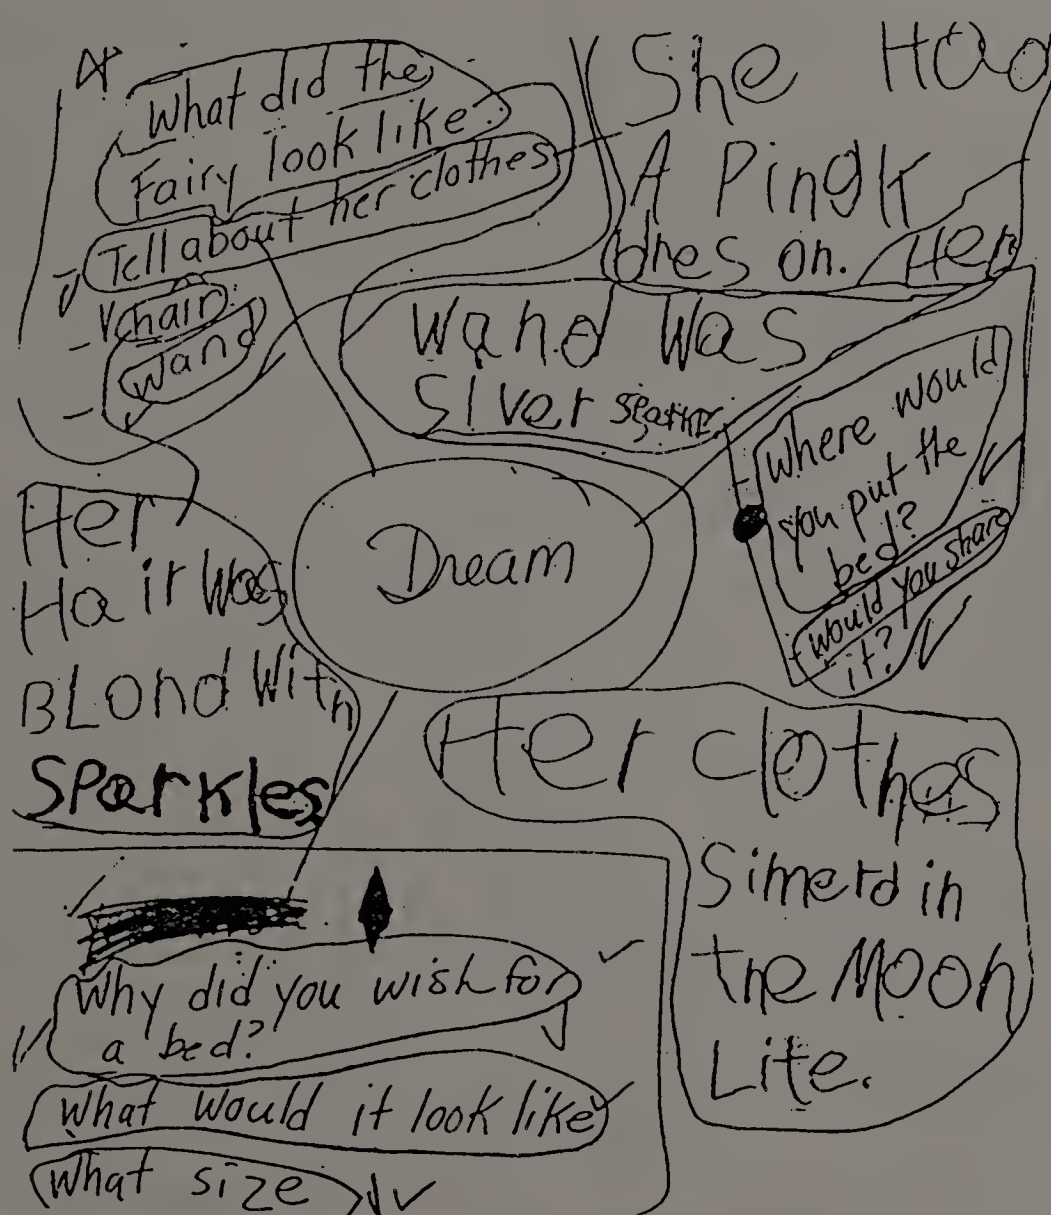 What did the
Fairy look like.
Tell about her clothes
hair
wand
She Had
A Pingk
dres on. Her
Wand Was
Silver
Where would
you put the
bed?
would you share
it?
Dream
Her
Hair Was
BLond With
SParkles
Her clothes
Simerd in
the Moon
Lite.
Why did you wish for
a bed?
What would it look like
What size